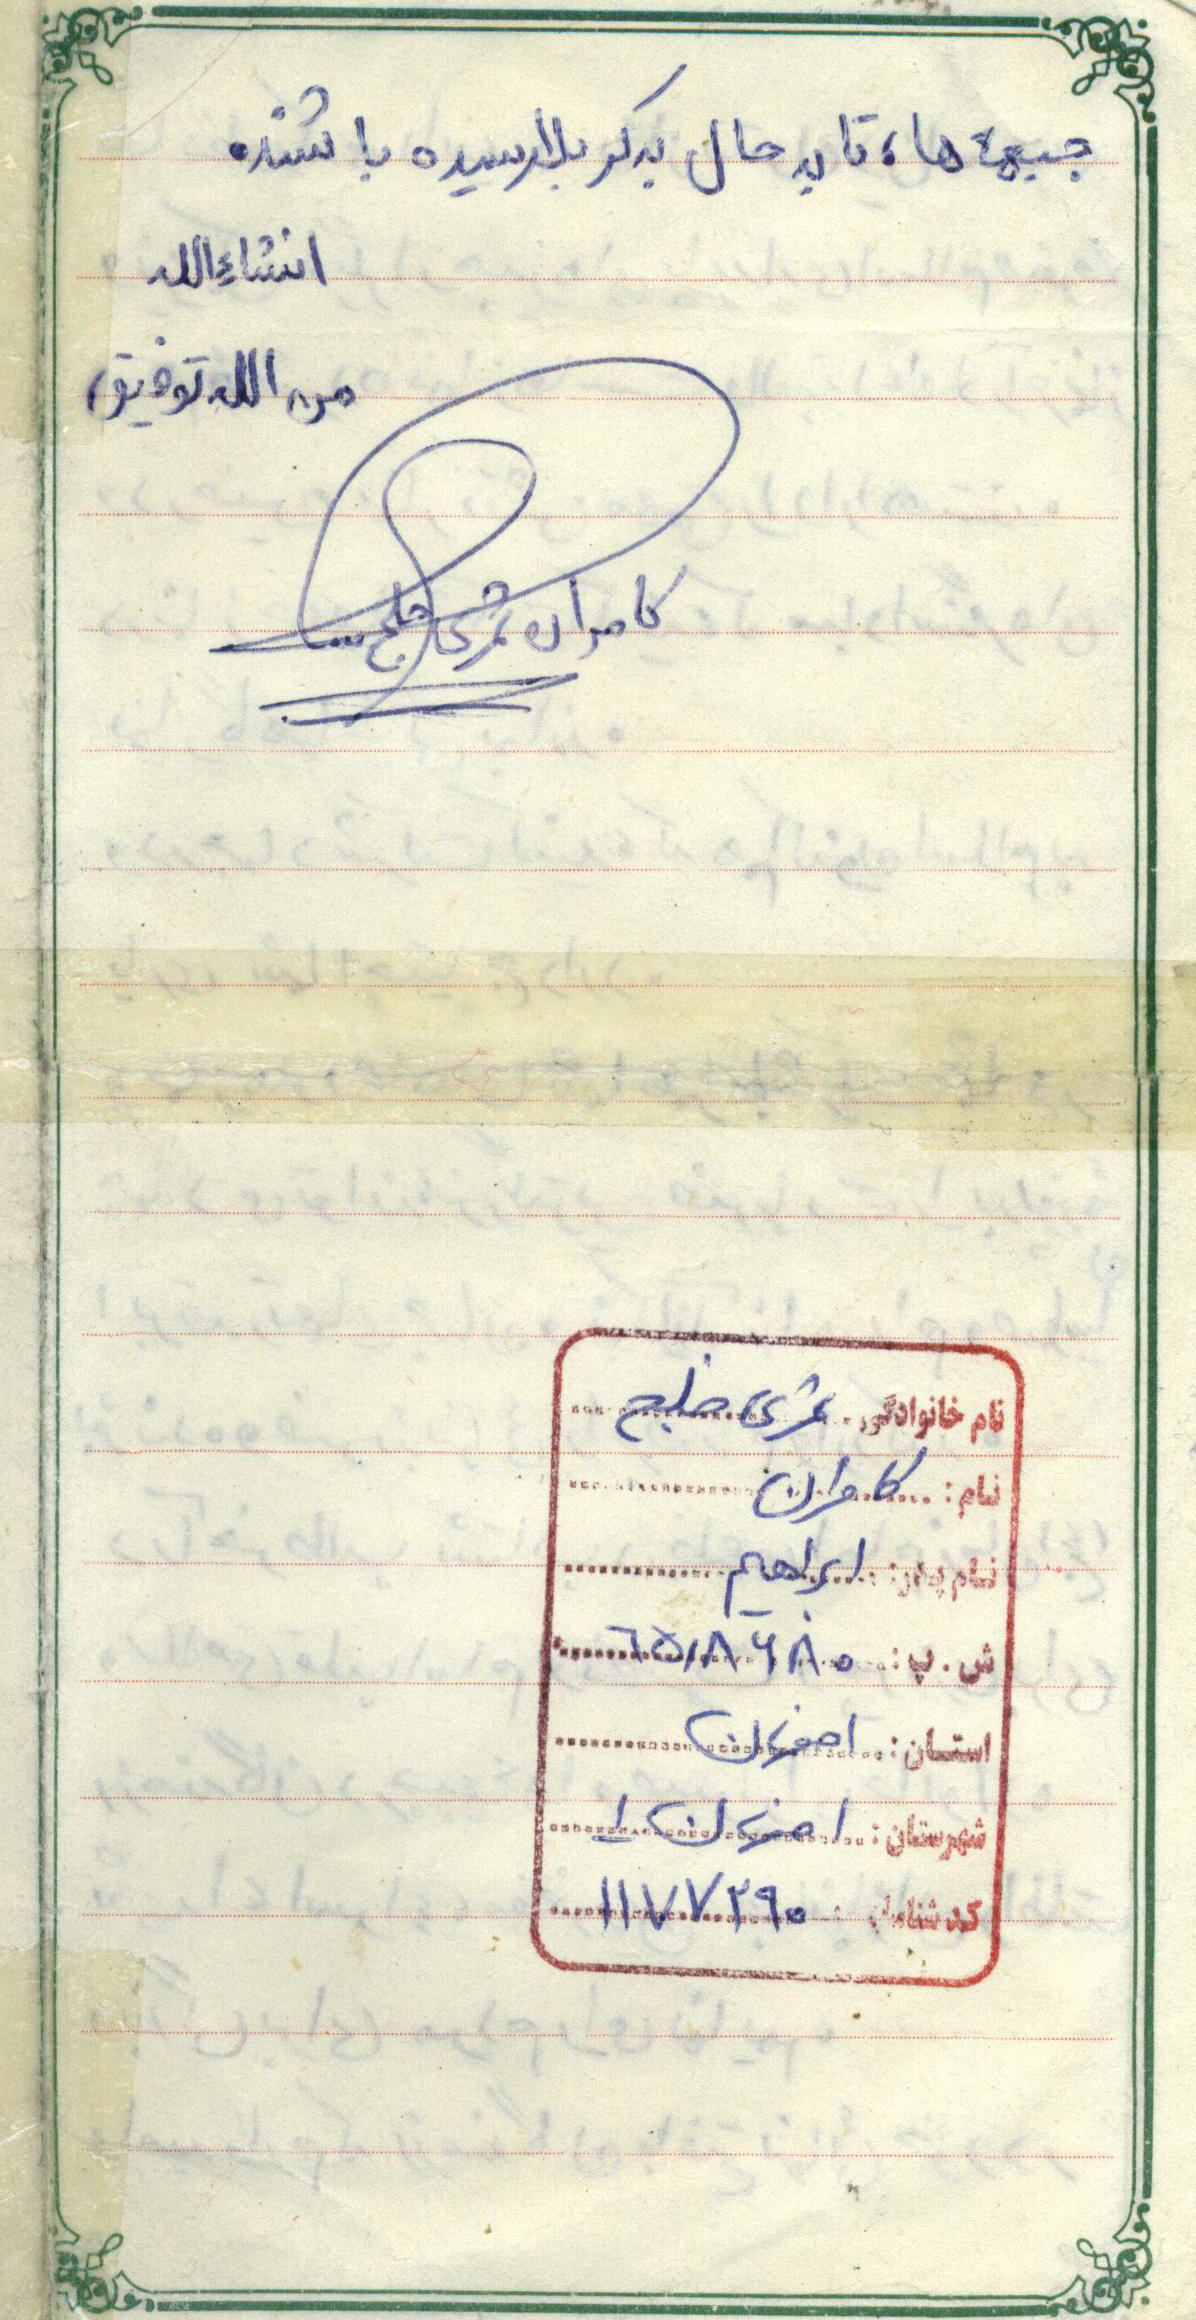 جبهه ها، تا به حال به کربلا رسیده باشند.
انشاءالله
من الله توفیق
کامران عرشی خلج
نام خانوادگی: عرشی خلج
نام: کامران
نام پدر: ابراهیم
ش.پ: ٦٥٨٦٨٠
استان: اصفهان
شهرستان: اصفهان ١
کد شناسائی: ١١٧٧٢٩٠